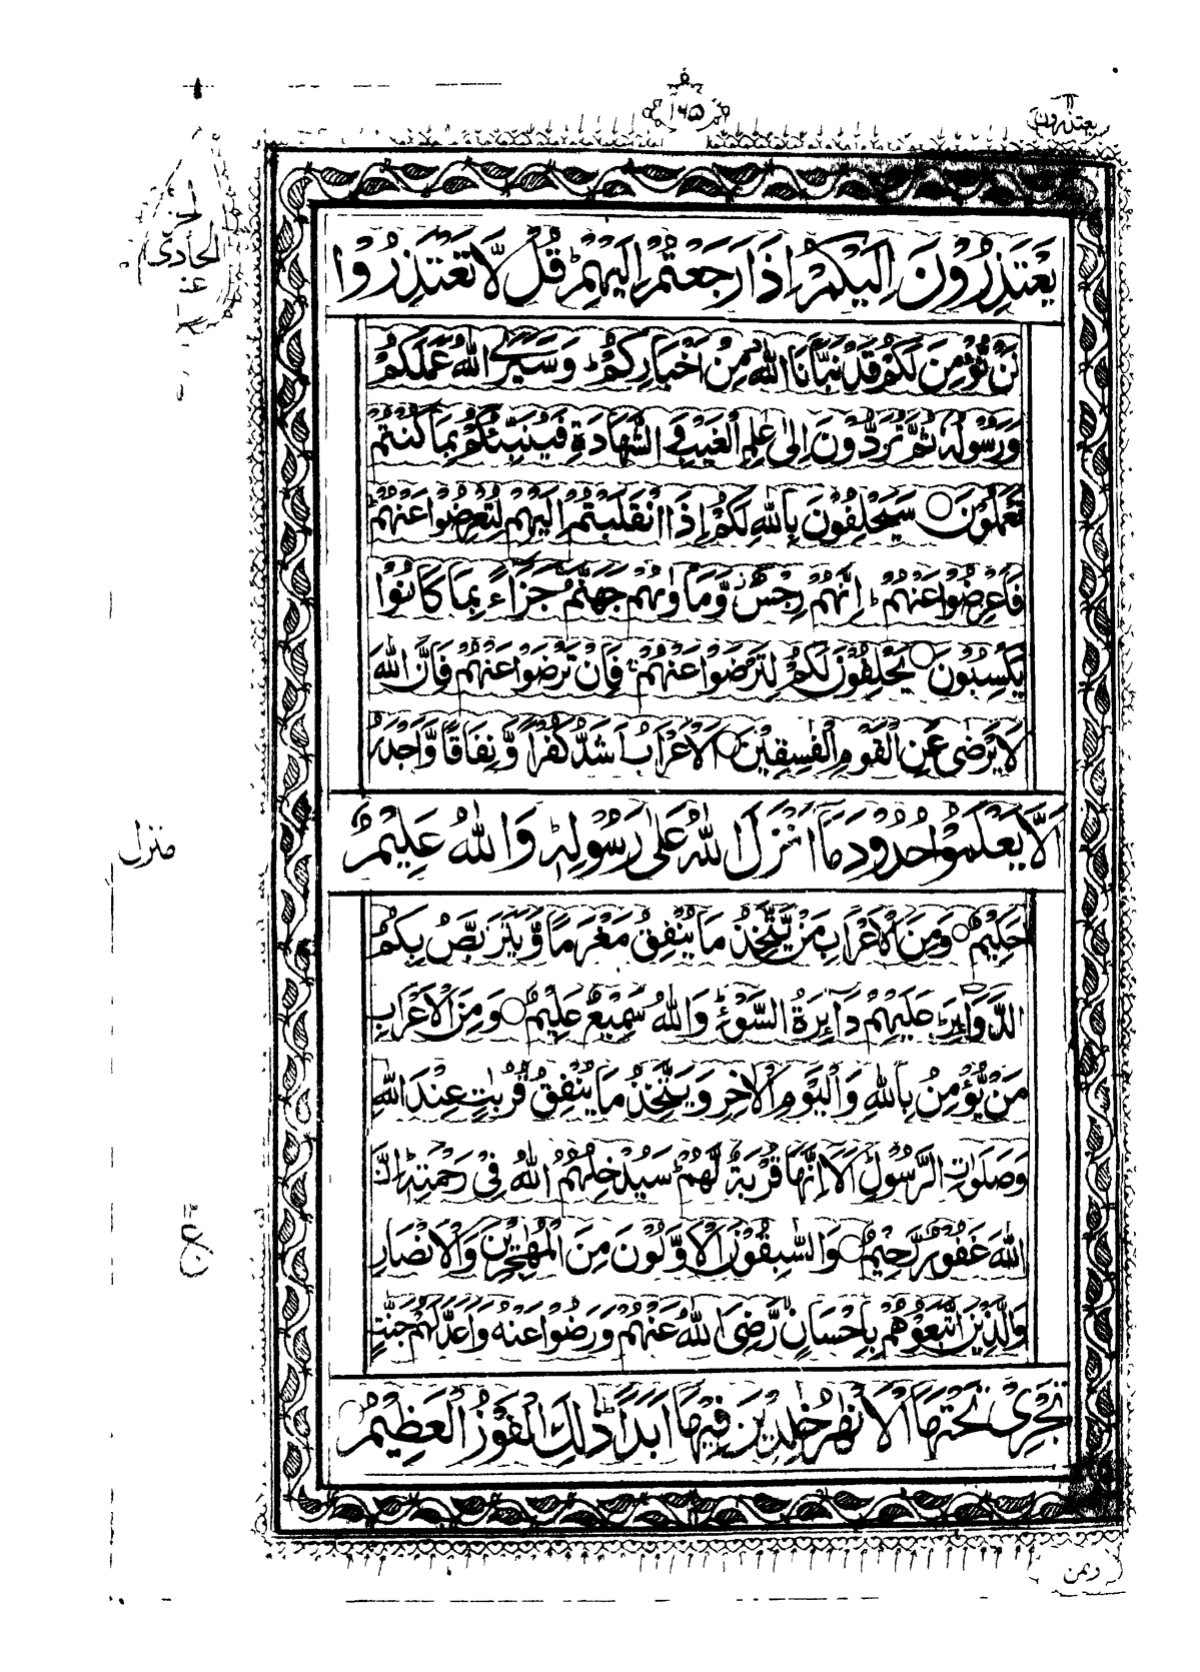 ١٦٥
يعتذرون
الجزء
الحادى
عشر
يَعْتَذِرُوْنَ اِلَيْكُمْ اِذَا رَجَعْتُمْ اِلَيْهِمْ ؕ قُلْ لَّا تَعْتَذِرُوْا
لَنْ نُّؤْمِنَ لَكُمْ قَدْ نَبَّاَنَا اللّٰهُ مِنْ اَخْبَارِكُمْ ؕ وَسَيَرَى اللّٰهُ عَمَلَكُمْ
وَرَسُوْلُهٗ ثُمَّ تُرَدُّوْنَ اِلٰى عٰلِمِ الْغَيْبِ وَ الشَّهَادَةِ فَيُنَبِّئُكُمْ بِمَا كُنْتُمْ
تَعْمَلُوْنَ ○ سَيَحْلِفُوْنَ بِاللّٰهِ لَكُمْ اِذَا انْقَلَبْتُمْ اِلَيْهِمْ لِتُعْرِضُوْا عَنْهُمْ ؕ
فَاَعْرِضُوْا عَنْهُمْ ؕ اِنَّهُمْ رِجْسٌ وَّمَاْوٰىهُمْ جَهَنَّمُ جَزَآءً بِمَا كَانُوْا
يَكْسِبُوْنَ ○ يَحْلِفُوْنَ لَكُمْ لِتَرْضَوْا عَنْهُمْ ۚ فَاِنْ تَرْضَوْا عَنْهُمْ فَاِنَّ اللّٰهَ
لَا يَرْضٰى عَنِ الْقَوْمِ الْفٰسِقِيْنَ ○ اَلْاَعْرَابُ اَشَدُّ كُفْرًا وَّنِفَاقًا وَّاَجْدَرُ
اَلَّا يَعْلَمُوْا حُدُوْدَ مَاۤ اَنْزَلَ اللّٰهُ عَلٰى رَسُوْلِهٖ ؕ وَاللّٰهُ عَلِيْمٌ
حَكِيْمٌ ○ وَمِنَ الْاَعْرَابِ مَنْ يَّتَّخِذُ مَا يُنْفِقُ مَغْرَمًا وَّيَتَرَبَّصُ بِكُمُ
الدَّوَآئِرَ ؕ عَلَيْهِمْ دَآئِرَةُ السَّوْءِ ؕ وَاللّٰهُ سَمِيْعٌ عَلِيْمٌ ○ وَمِنَ الْاَعْرَابِ
مَنْ يُّؤْمِنُ بِاللّٰهِ وَالْيَوْمِ الْاٰخِرِ وَيَتَّخِذُ مَا يُنْفِقُ قُرُبٰتٍ عِنْدَ اللّٰهِ
وَصَلَوٰتِ الرَّسُوْلِ ؕ اَلَاۤ اِنَّهَا قُرْبَةٌ لَّهُمْ ؕ سَيُدْخِلُهُمُ اللّٰهُ فِيْ رَحْمَتِهٖ ؕ اِنَّ
اللّٰهَ غَفُوْرٌ رَّحِيْمٌ ○ وَالسّٰبِقُوْنَ الْاَوَّلُوْنَ مِنَ الْمُهٰجِرِيْنَ وَالْاَنْصَارِ
وَالَّذِيْنَ اتَّبَعُوْهُمْ بِاِحْسَانٍ رَّضِيَ اللّٰهُ عَنْهُمْ وَرَضُوْا عَنْهُ وَاَعَدَّ لَهُمْ جَنّٰتٍ
تَجْرِيْ تَحْتَهَا الْاَنْهٰرُ خٰلِدِيْنَ فِيْهَاۤ اَبَدًا ؕ ذٰلِكَ الْفَوْزُ الْعَظِيْمُ ○
منزل
ع
وممن